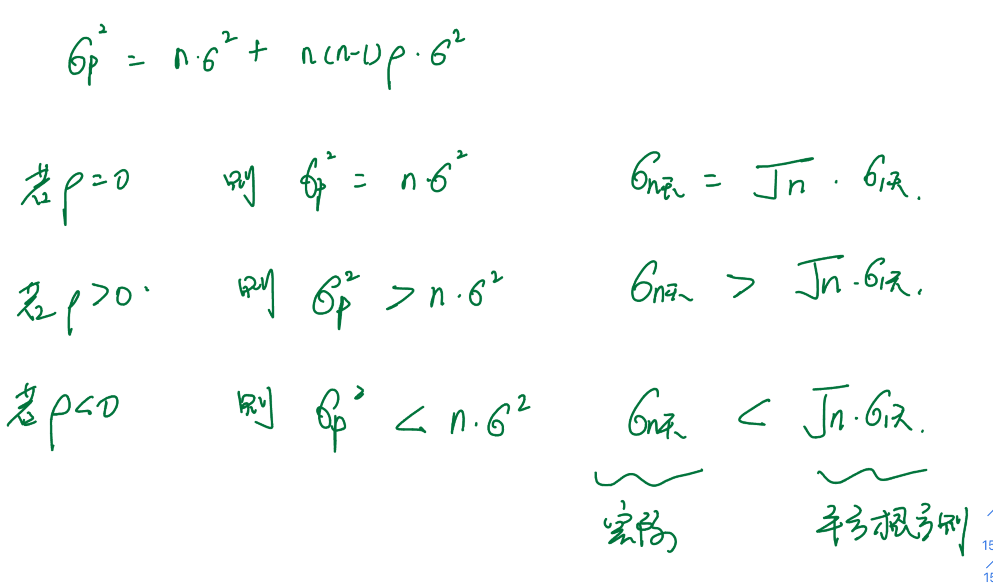 σp² = n·σ² + n(n-1)ρ·σ²
若ρ=0 则 σp² = n·σ² σn天 = √n · σ1天.
若ρ>0. 则 σp² > n·σ² σn天 > √n·σ1天.
若ρ<0 则 σp² < n·σ² σn天 < √n·σ1天.
实际 平方根法则
15
15